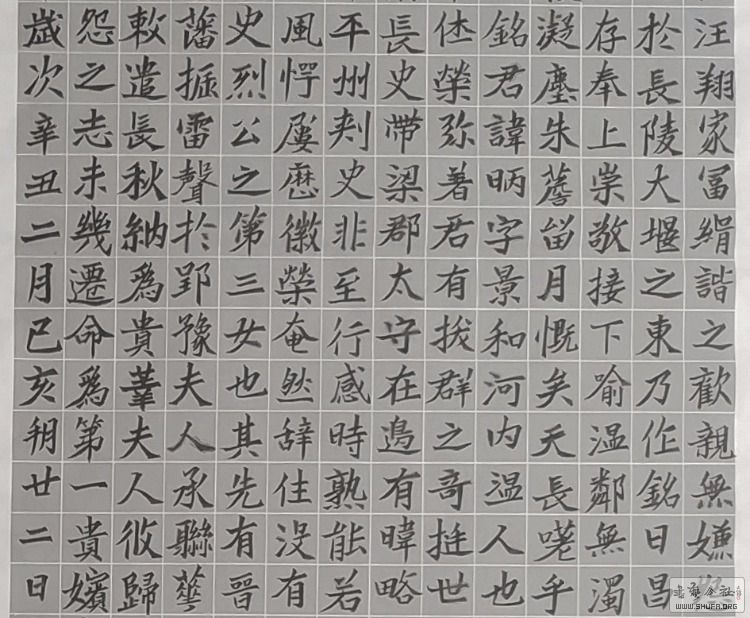 汪翔家富絹諧之歡親無嫌
於長陵大堰之東乃作銘曰昌
存奉上崇敬接下喻温鄰無濁
凝塵朱蕚甾月慨矣天長嘒乎
銘君諱昞字景和河内温人也
休榮弥著君有拔群之奇挺世
長史帶梁郡太守在邊有暐略
平州刾史非至行感時熟能若
風愕屢應徽榮奄然辞住没有
史烈公之第三女也其先有晉
藩掘雷聲於郢豫夫人承聯華
敕遣長秋納為貴華夫人後歸
怨之志未幾遷命為第一貴嬪
歲次辛丑二月己亥朔廿二日
WWW.SHUFA.ORG